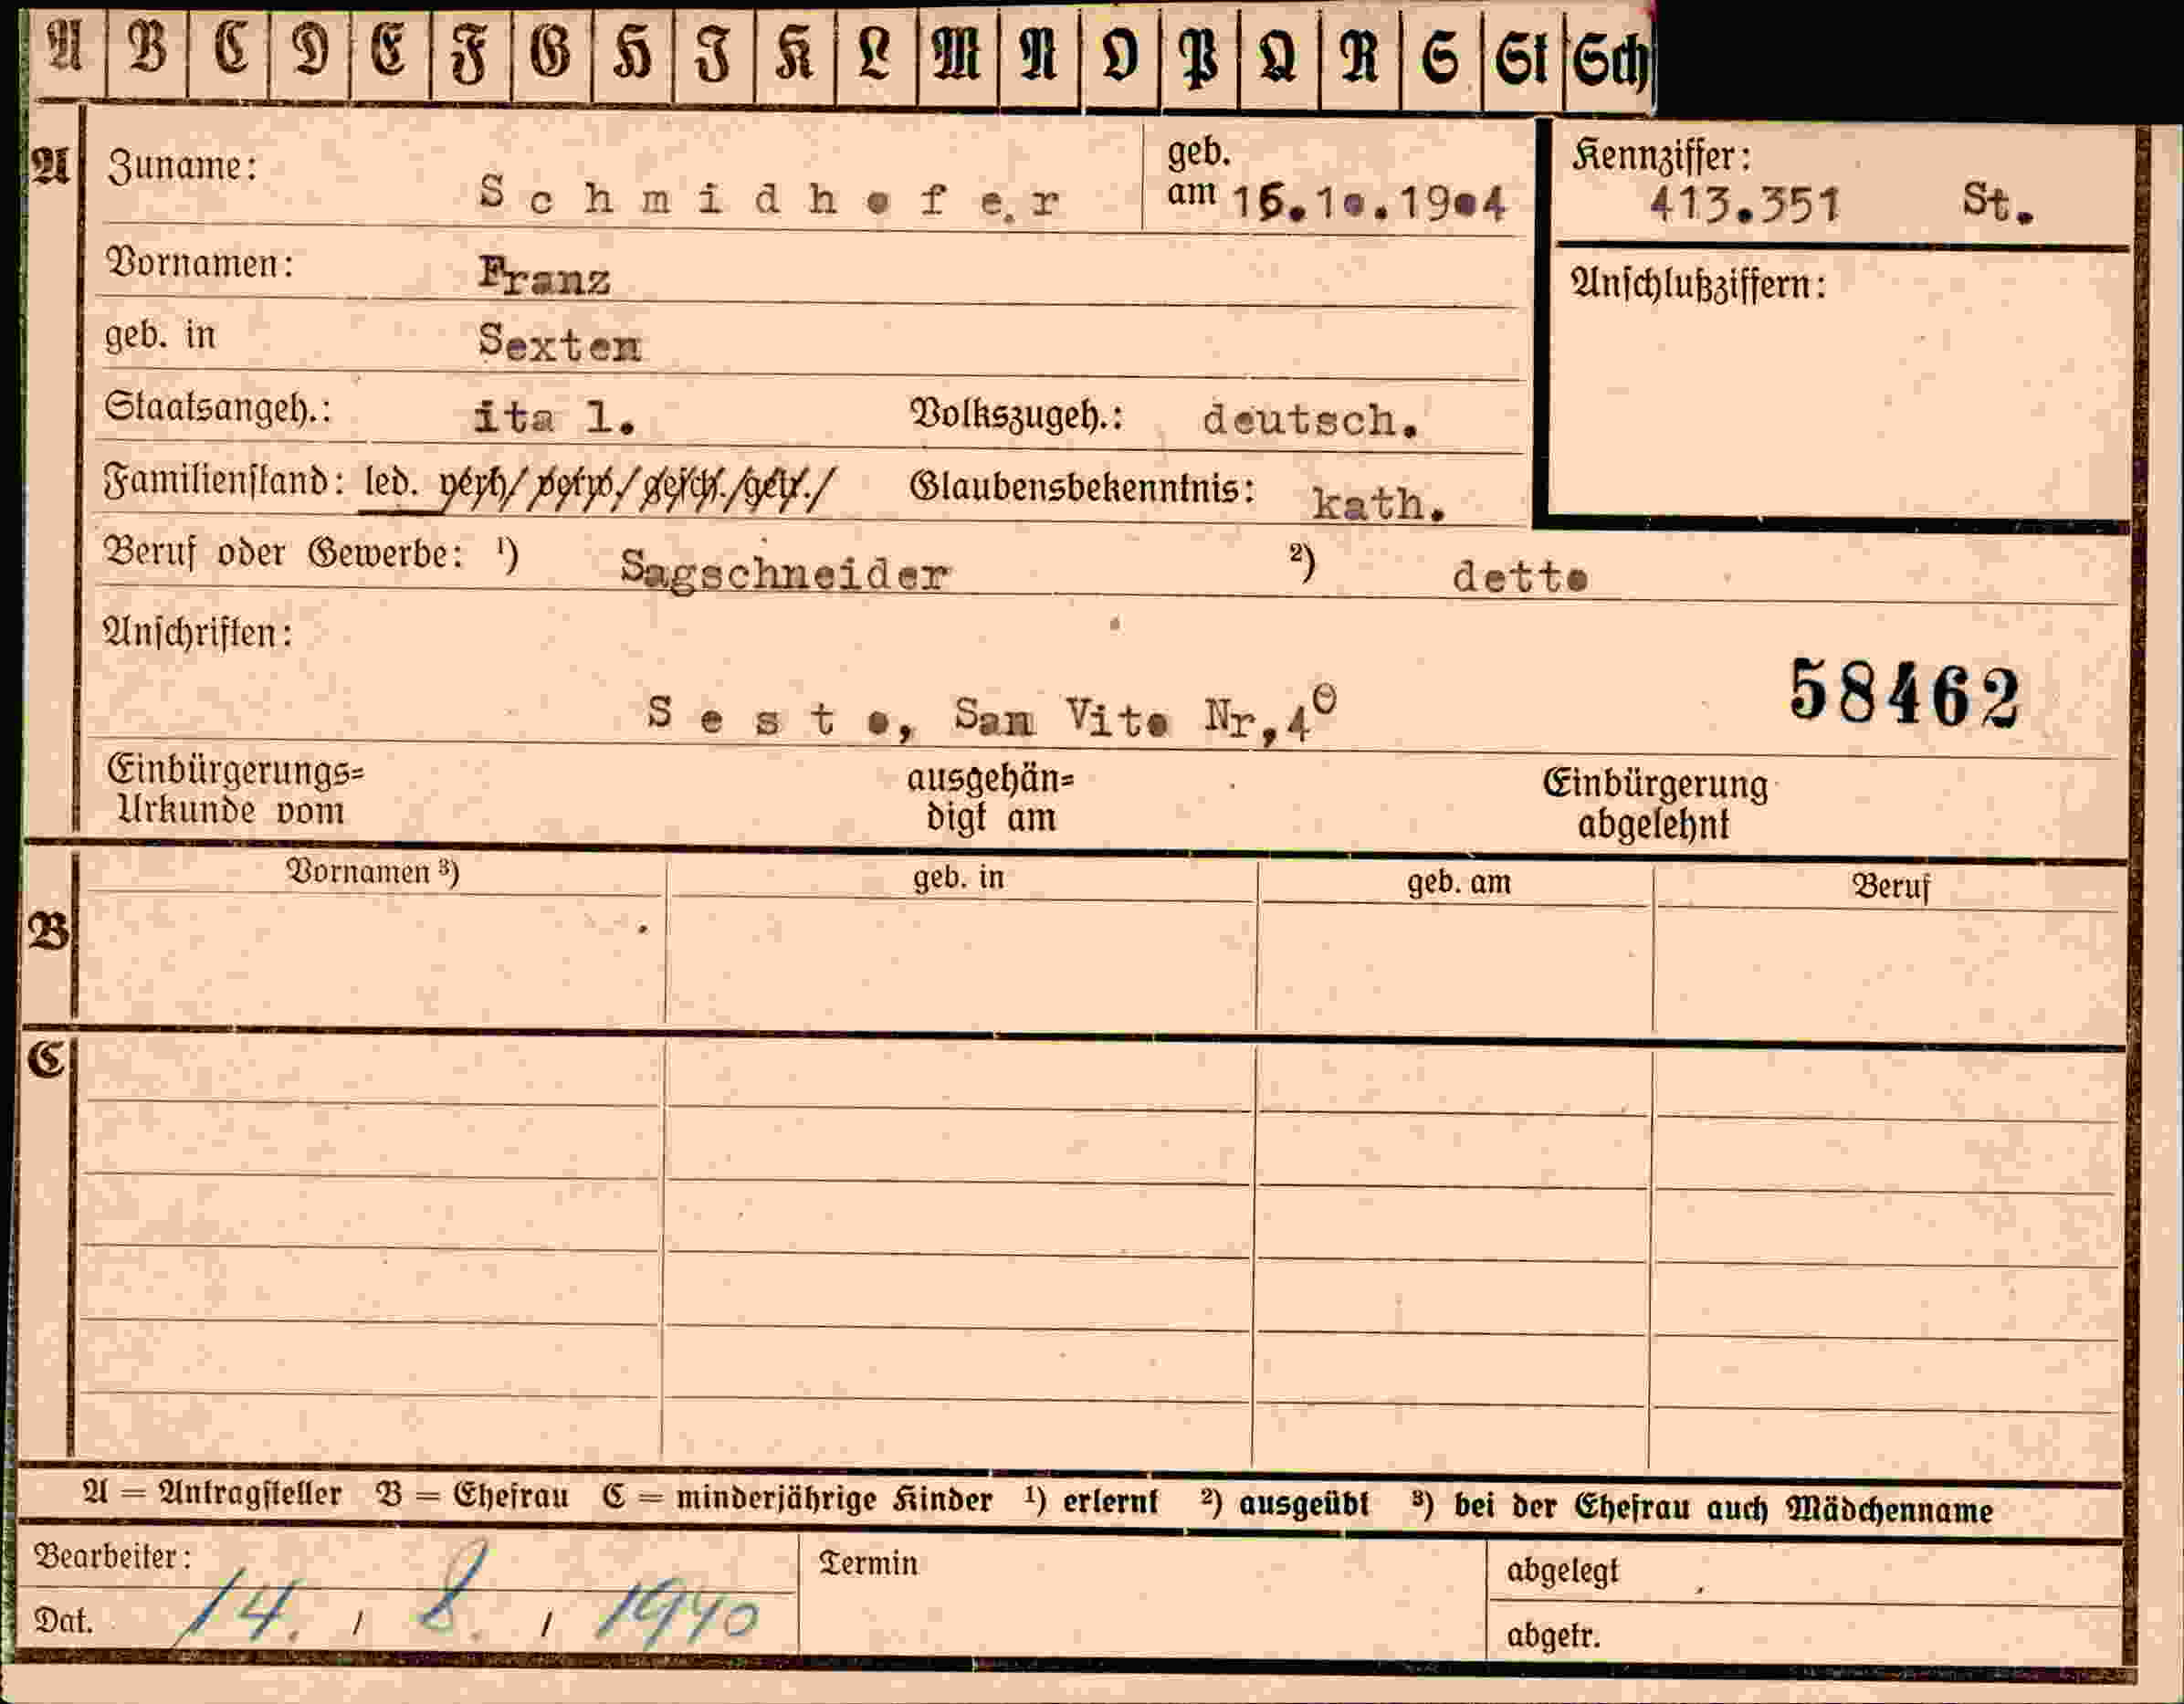 A B C D E F G H I K L M N O P Q R S St Sch
A Zuname: Schmidhofer geb. am 16.10.1904 Kennziffer: 413.351 St.
Vornamen: Franz Anschlußziffern:
geb. in Sexten
Staatsangeh.: ita l. Volkszugeh.: deutsch.
Familienstand: led. verh/ verw./gesch./getr./ Glaubensbekenntnis: kath.
Beruf oder Gewerbe: ¹) Sagschneider ²) detto
Anschriften:
58462
Sesto, San Vito Nr,40
Einbürgerungs= Urkunde vom ausgehän= digt am Einbürgerung abgelehnt
Vornamen ³) geb. in geb. am Beruf
B
C
A = Antragsteller B = Ehefrau C = minderjährige Kinder ¹) erlernt ²) ausgeübt ³) bei der Ehefrau auch Mädchenname
Bearbeiter: Termin abgelegt
Dat. 14. / 8. / 1940 abgetr.